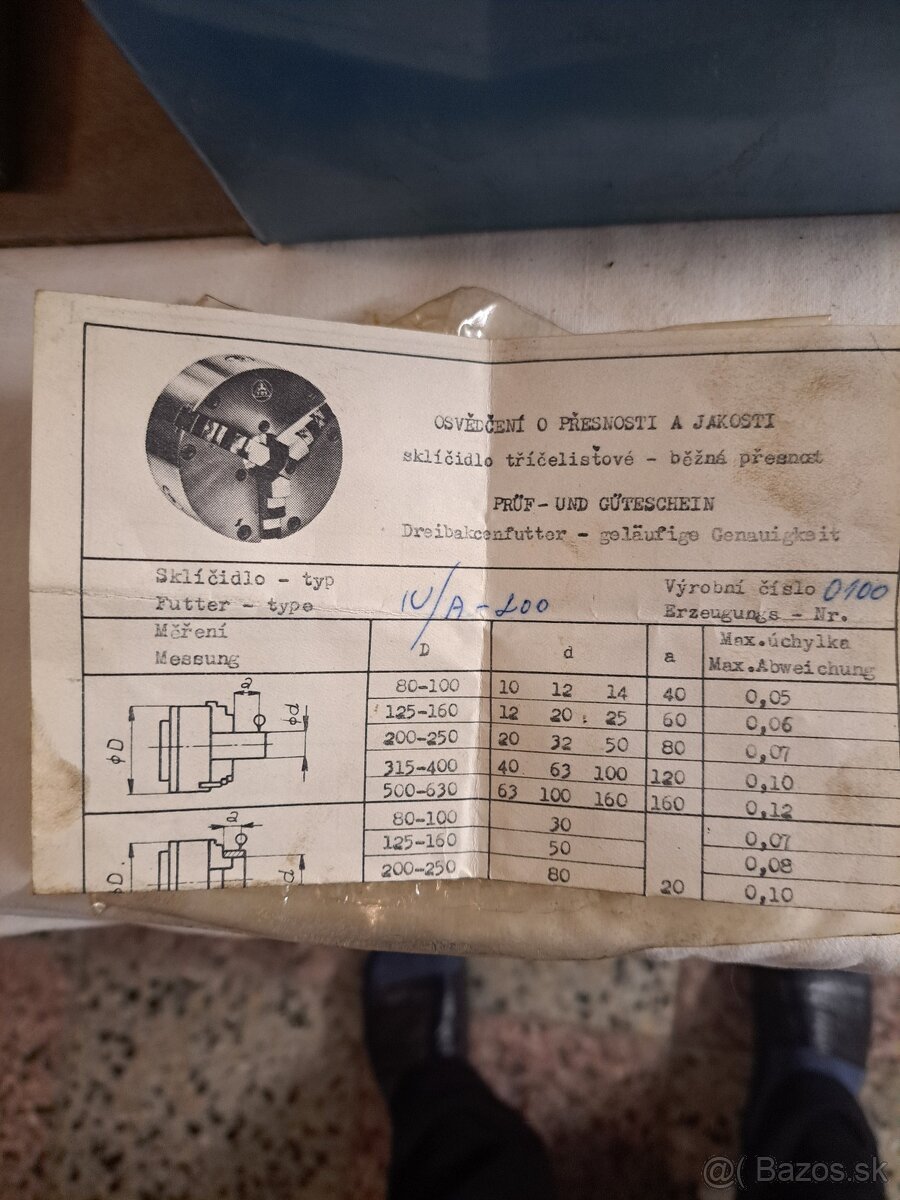 OSVĚDČENÍ O PŘESNOSTI A JAKOSTI
sklíčidlo tříčelisťové - běžná přesnost
PRÜF- UND GÜTESCHEIN
Dreibakcenfutter - geläufige Genauigkeit
Sklíčidlo - typ
Futter - type
IU/A-200
Výrobní číslo 0100
Erzeugungs - Nr.
Měření
Messung
D
d
a
Max.úchylka
Max.Abweichung
80-100 10 12 14 40 0,05
125-160 12 20 25 60 0,06
200-250 20 32 50 80 0,07
315-400 40 63 100 120 0,10
500-630 63 100 160 160 0,12
a
ϕd
ϕD
80-100 30 0,07
125-160 50 0,08
200-250 80 20 0,10
a
ϕD.
d
@( Bazos.sk